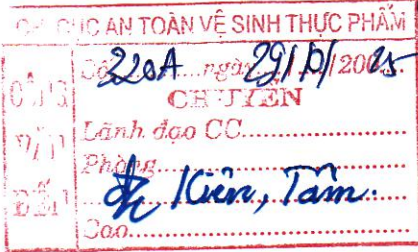 CHI CỤC AN TOÀN VỆ SINH THỰC PHẨM
CÔNG VĂN ĐẾN
Số 220A ngày 29/10/2025
CHUYỂN
Lãnh đạo CC
Phòng
Kiên, Tâm.